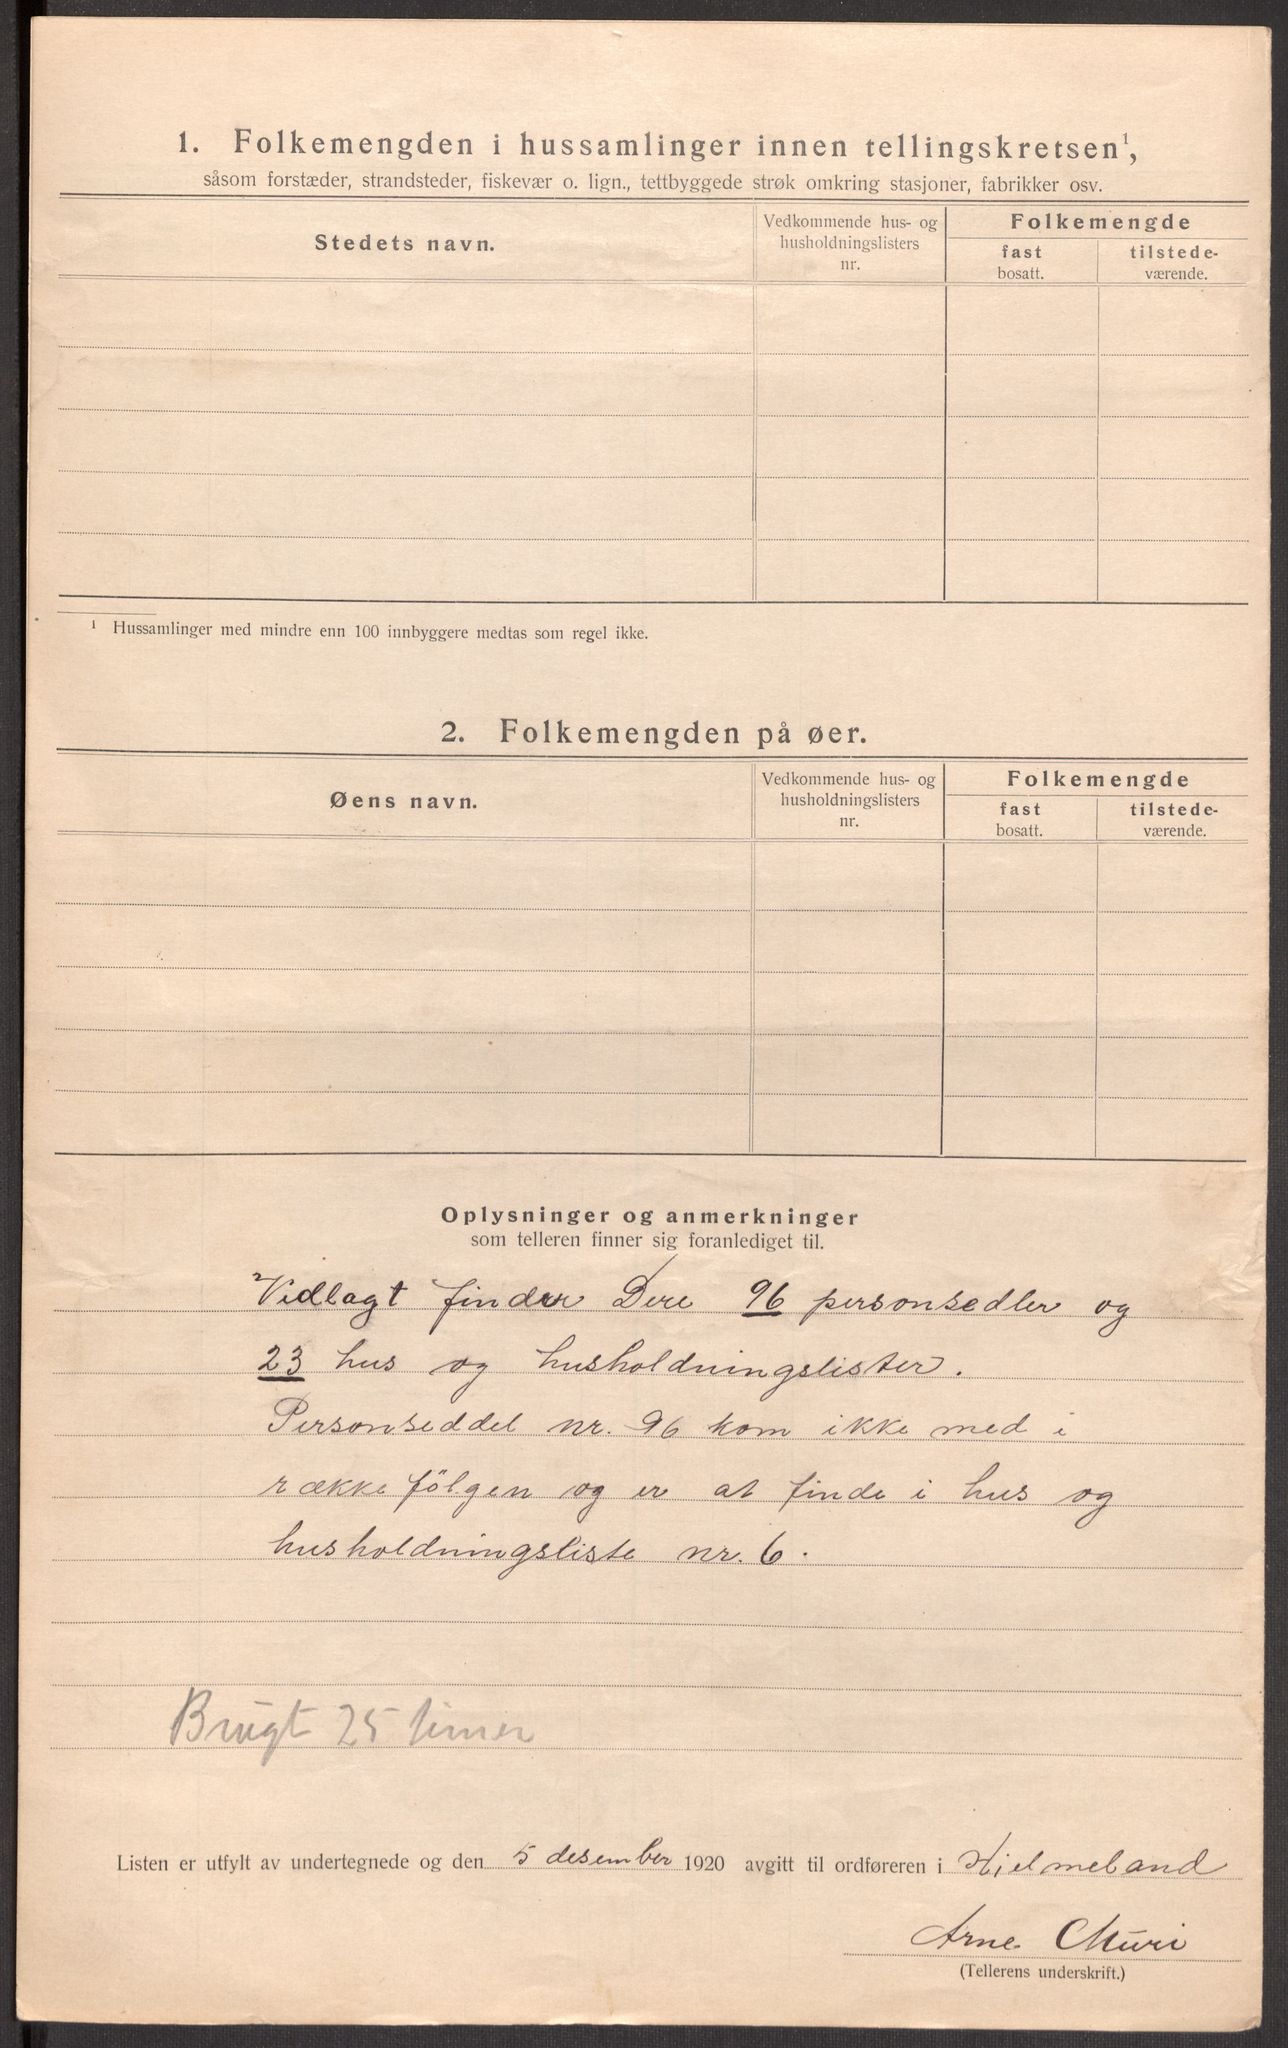 1. Folkemengden i hussamlinger innen tellingskretsen¹,
såsom forstæder, strandsteder, fiskevær o. lign., tettbyggede strøk omkring stasjoner, fabrikker osv.
Stedets navn.
Vedkommende hus- og
husholdningslisters
nr.
Folkemengde
fast
bosatt.
tilstede-
værende.
¹ Hussamlinger med mindre enn 100 innbyggere medtas som regel ikke.
2. Folkemengden på øer.
Øens navn.
Vedkommende hus- og
husholdningslisters
nr.
Folkemengde
fast
bosatt.
tilstede-
værende.
Oplysninger og anmerkninger
som telleren finner sig foranlediget til.
Vedlagt finder Dere 96 personsedler og
23 hus og husholdningslister.
Personseddel nr. 96 kom ikke med i
rækkefølgen og er at finde i hus og
husholdningsliste nr. 6.
Brugt 25 timer
Listen er utfylt av undertegnede og den 5 desember 1920 avgitt til ordføreren i Hjelmeland
Arne Muri
(Tellerens underskrift.)